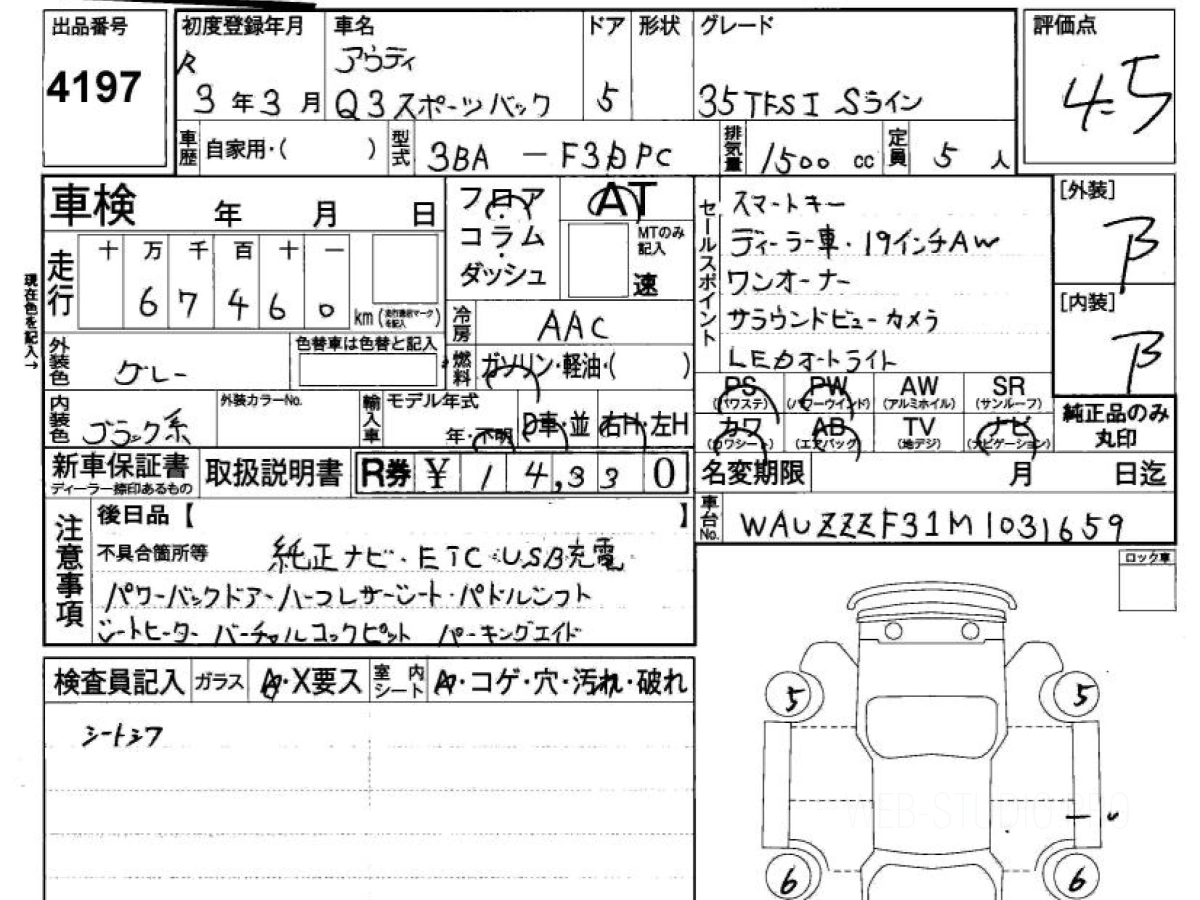 出品番号
4197
初度登録年月
R
3年3月
車名
アウディ
Q3スポーツバック
ドア
5
形状
グレード
35TFSI Sライン
評価点
4.5
車歴
自家用・( )
型式
3BA － F3DPC
排気量
1500 cc
定員
5 人
車検 年 月 日
フロア
コラム
ダッシュ
AT
MTのみ記入
速
セールスポイント
スマートキー
ディーラー車・19インチAW
ワンオーナー
サラウンドビューカメラ
LEDオートライト
[外装]
B
[内装]
B
現在色を記入→
走行
十 万 千 百 十 一
6 7 4 6 0
km
冷房
AAC
外装色
グレー
色替車は色替と記入
燃料
ガソリン・軽油・( )
PS
(パワステ)
PW
(パワーウインド)
AW
(アルミホイル)
SR
(サンルーフ)
カワ
(カワシート)
AB
(エアバッグ)
TV
(地デジ)
ナビ
(ナビゲーション)
純正品のみ
丸印
内装色
ブラック系
外装カラーNo.
輸入車
モデル年式
年・不明
D車・並
右H・左H
新車保証書
ディーラー捺印あるもの
取扱説明書
R券 ¥ 14,330
名変期限 月 日迄
車台No.
WAUZZZF31M1031659
注意事項
後日品【 】
不具合箇所等
純正ナビ・ETC・USB充電
パワーバックドアー ハーフレザーシート・パドルシフト
シートヒーター バーチャルコックピット パーキングエイド
ロック車
検査員記入
ガラス
A・X要ス
室内
シート
A・コゲ・穴・汚れ・破れ
シートシワ
5
5
WEB-STUDIO PRO
6
6